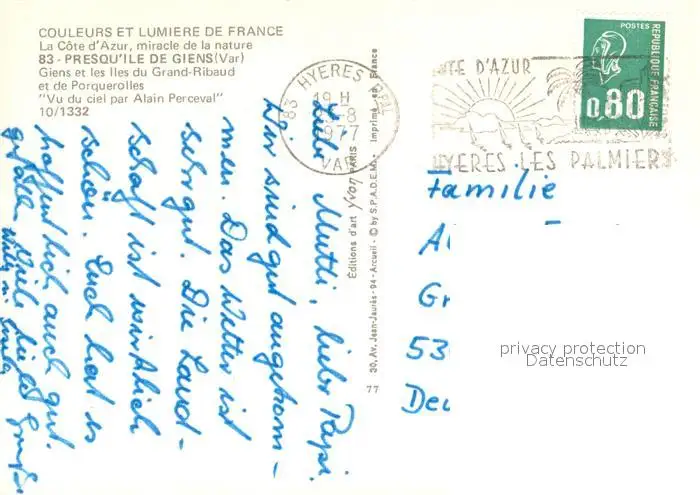 COULEURS ET LUMIERE DE FRANCE
La Côte d'Azur, miracle de la nature
83 - PRESQU'ILE DE GIENS (Var)
Giens et les Iles du Grand-Ribaud
et de Porquerolles
"Vu du ciel par Alain Perceval"
10/1332
Liebe Mutti, lieber Papi.
Wir sind gut angekom-
men. Das Wetter ist
sehr gut. Die Land-
schaft ist wirklich
schön. Euch hat es
hoffentlich auch gut
gefallen. Viele liebe Grüße
Editions d'art Yvon PARIS
30, Av. Jean-Jaurès - 94 - Arcueil - © by S.P.A.D.E.M. - Imprimé en France
77
83 HYERES PPAL
19 H
-8
1977
VAR
TE D'AZUR
HYERES LES PALMIERS
POSTES
REPUBLIQUE FRANÇAISE
0,80
Familie
A
Gr
53
Deu
privacy protection
Datenschutz